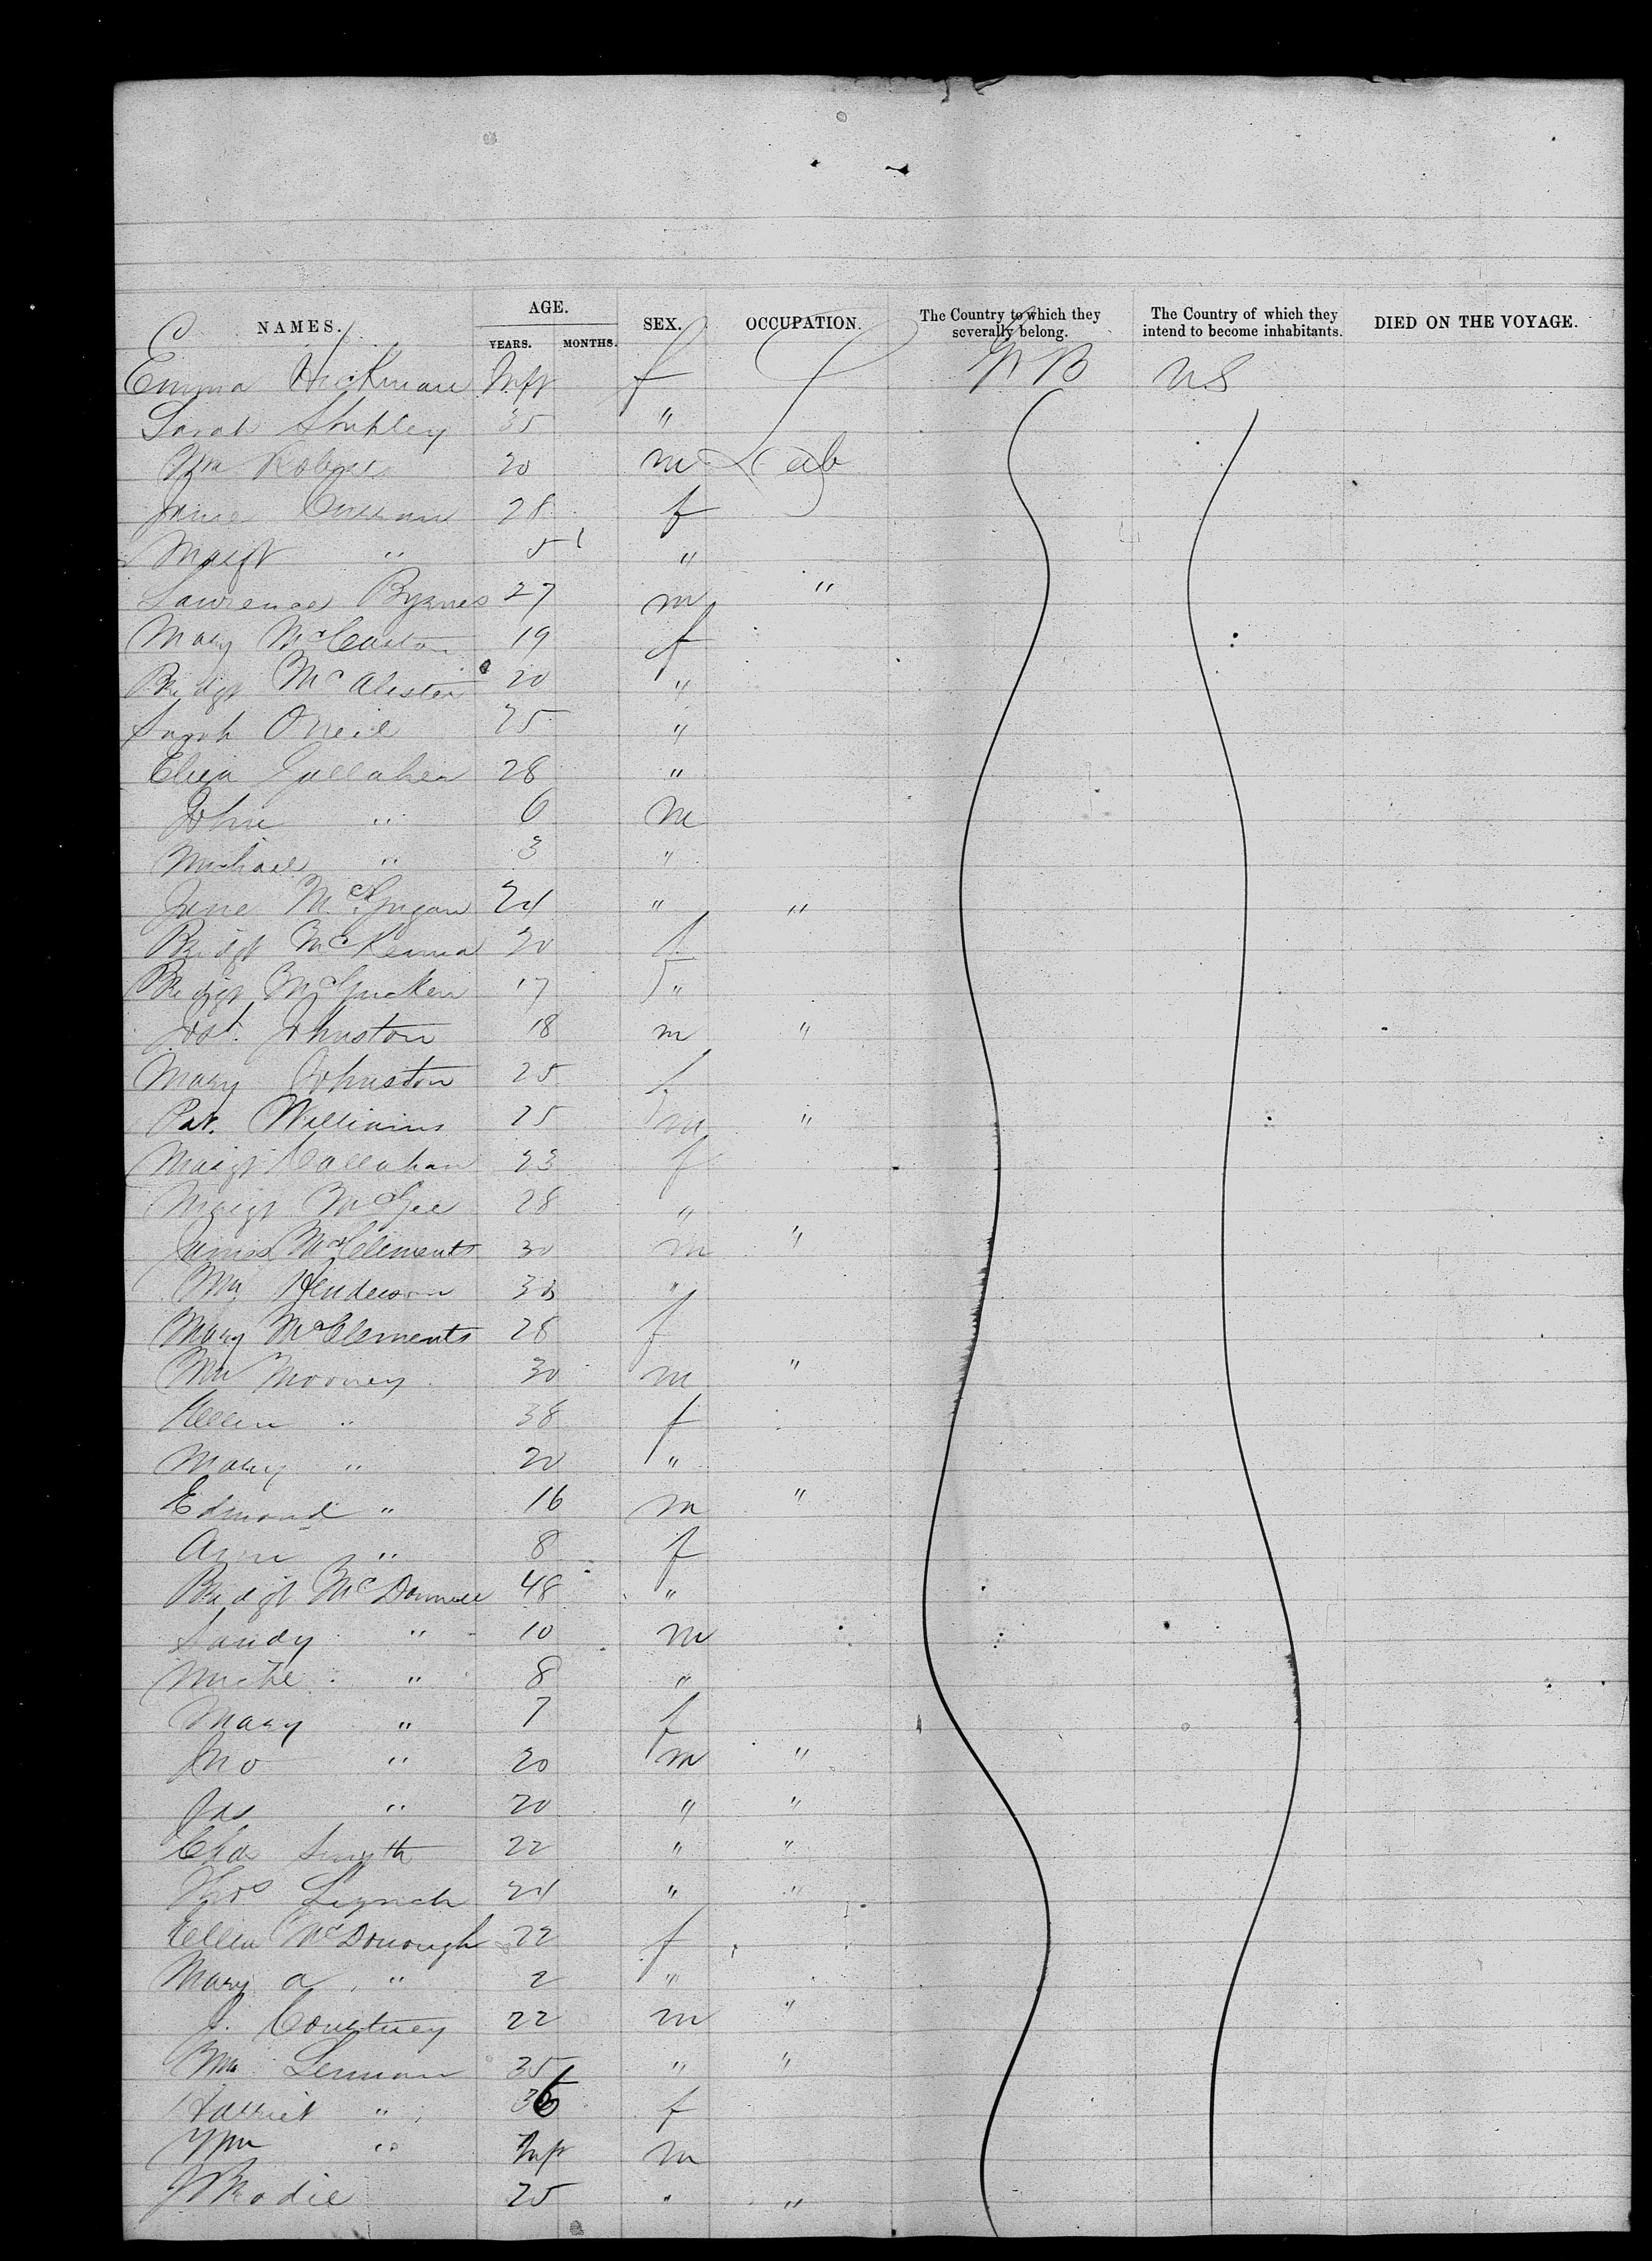 NAMES. AGE. YEARS. MONTHS. SEX. OCCUPATION. The Country to which they severally belong. The Country of which they intend to become inhabitants. DIED ON THE VOYAGE.
Emma Hickman Inft f N B U.S
Sarah 35 "
Wm 20 m Lab
Jane Curran 28 f
Margt " 5 "
Lawrence Byrnes 27 m "
Mary 19 f
Bridgt McAlister 20 "
Sarah ONeil 25 "
Eliza Gallaher 28 "
John " 6 m
Michael " 3 "
Jane McGugan 24 " "
Bridgt McKenna 20 f
Bridgt McGucken 17 "
Jos. Johnston 18 m "
Mary Johnston 25 f
Pat. Williams 25 m "
Margt Callahan 23 f
Margt McGee 28 "
James McClements 30 m "
Wm Henderson 33 "
Mary McClements 28 f
Wm Mooney 30 m "
Ellen " 38 f
Mary " 20 "
Edmond " 16 m "
Ann " 8 f
Bridgt McDonnell 48 "
Sandy " 10 m
Michl " 8 "
Mary " 7 f
Jno " 20 m "
Jas " 20 " "
Chas Smyth 22 " "
Thos Lynch 24 " "
Ellen McDonough 22 f
Mary A " 2 "
J. Courtney 22 m "
Wm Lennan 35 " "
Harriet " 36 f
Wm " Inft m
J Brodie 25 " "